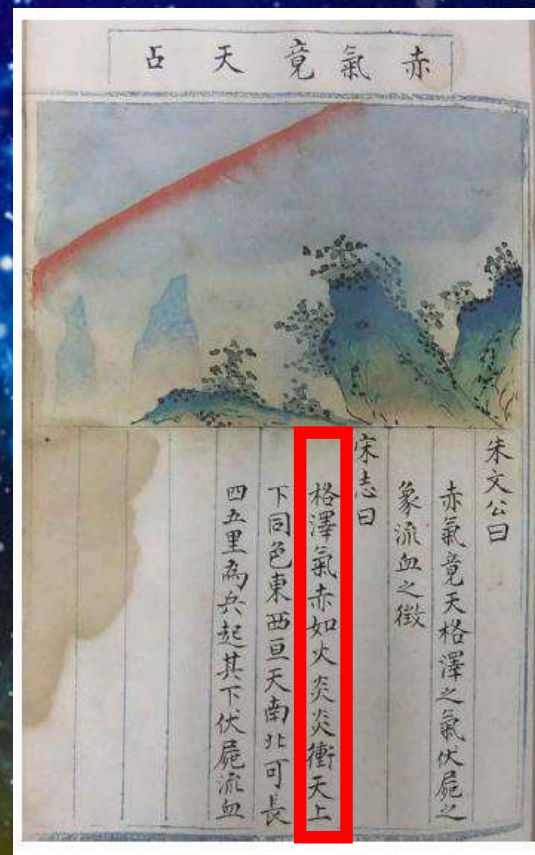 赤氣竟天占
朱文公曰
赤氣竟天格澤之氣伏屍之
象流血之徵
宋志曰
格澤氣赤如火炎炎衝天上
下同色東西亘天南北可長
四五里為兵起其下伏屍流血